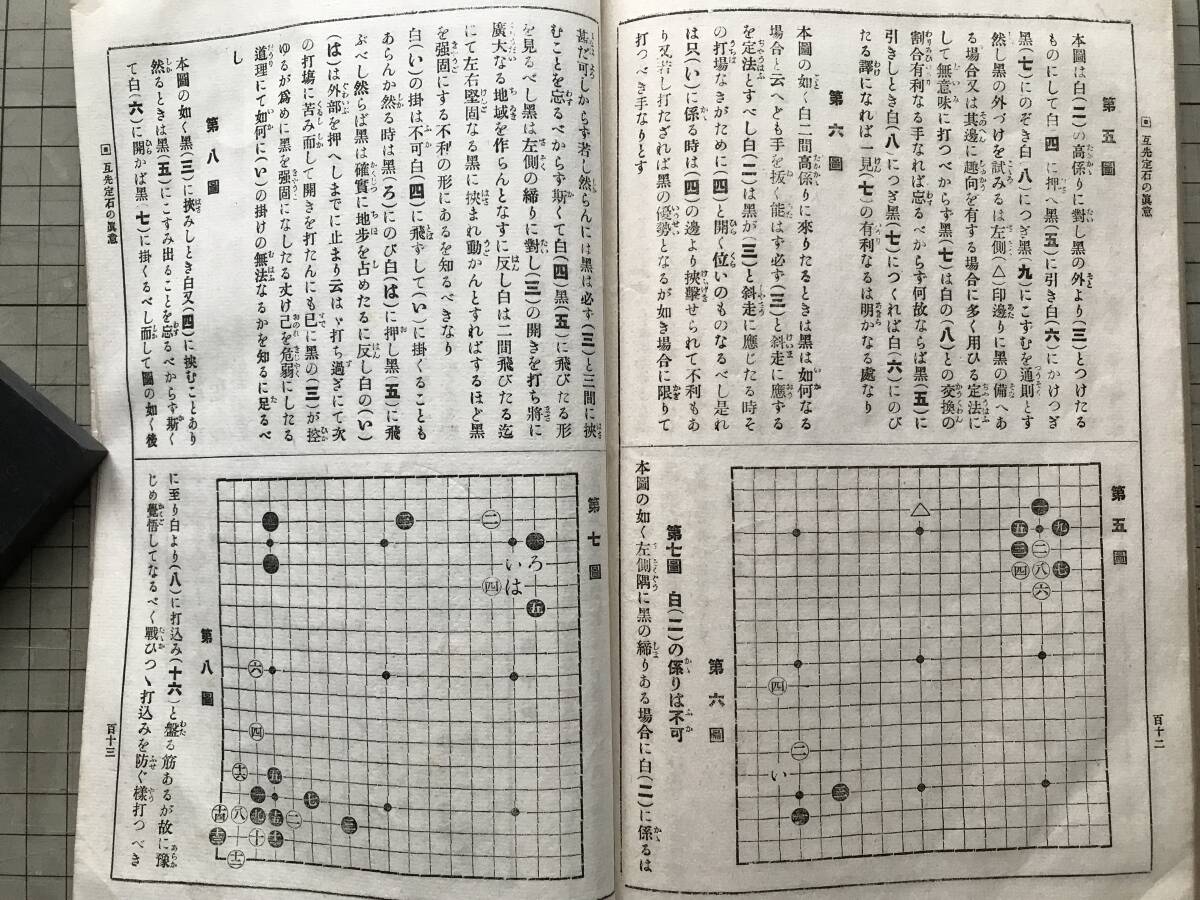 互先定石の眞意
百十二
第五圖
本圖は白(二)の高係りに對し黑の外より(三)とつけたる
ものにして白(四)に押へ黑(五)に引き白(六)にかけつぎ
黑(七)にのぞき白(八)につぎ黑(九)にこすむを通則とす
然し黑の外づけを試みるは左側(△)印邊りに黑の備へあ
る場合又は其邊に趣向を有する場合に多く用ひる定法に
して無意味に打つべからず黑(七)は白の(八)との交換の
割合有利なる手なれば忘るべからず何故ならば黑(五)に
引きしとき白(八)につぎ黑(七)につくれば白(六)にのび
たる譯になれば一見(七)の有利なるは明かなる處なり
第六圖
本圖の如く白二間高係りに來りたるときは黑は如何なる
場合と云へども手を抜く能はず必ず(三)と斜走に應ずる
を定法とすべし白(二)は黑が(三)と斜走に應じたる時そ
の打場なきがために(四)と開く位いのものなるべし是れ
は只(い)に係る時は(四)の邊より挾擊せられて不利もあ
り又若し打たざれば黑の優勢となるが如き場合に限りて
打つべき手なりとす
第五圖
一
九
五
三
二
四
八
七
六
△
第六圖
四
二
い
三
一
第七圖 白(二)の係りは不可
本圖の如く左側隅に黑の締りある場合に白(二)に係るは
甚だ可しからず若し然らんには黑は必ず(三)と三間に挾
むことを忘るべからず斯くて白(四)黑(五)に飛びたる形
を見るべし黑は左側の締りに對し(三)の開きを打ち將に
廣大なる地域を作らんとなすに反し白は二間飛びたる迄
にて左右堅固なる黑に挾まれ動かんとすればするほど黑
を强固にする不利の形にあるを知るべきなり
白(い)の掛は不可白(四)に飛ずして(い)に掛くることも
あらんか然る時は黑(ろ)にのび白(は)に押し黑(五)に飛
ぶべし然らば黑は確實に地步を占めたるに反し白の(い)
(は)は外部を押へしまでに止まり云はゞ打ち過ぎにて次
の打塲に苦み而して開きを打たんにも已に黑の(三)が控
ゆるが爲めに黑を强固になしたる丈け己を危弱にしたる
道理にて如何に(い)の掛けの無法なるかを知るに足るべ
し
第八圖
本圖の如く黑(三)に挾みしとき白又(四)に挾むことあり
然るときは黑(五)にこすみ出ることを忘るべからず斯く
て白(六)に開かば黑(七)に掛くるべし而して圖の如く後
互先定石の眞意
百十三
第七圖
三
二
一
ろ
い
は
四
五
第八圖
六
四
十六
五
一
七
十四
八
九
十五
二
三
十三
十
十一
十二
に至り白より(八)に打込み(十六)と盤る筋あるが故に豫
じめ覺悟してなるべく戰ひつゝ打込みを防ぐ樣打つべき